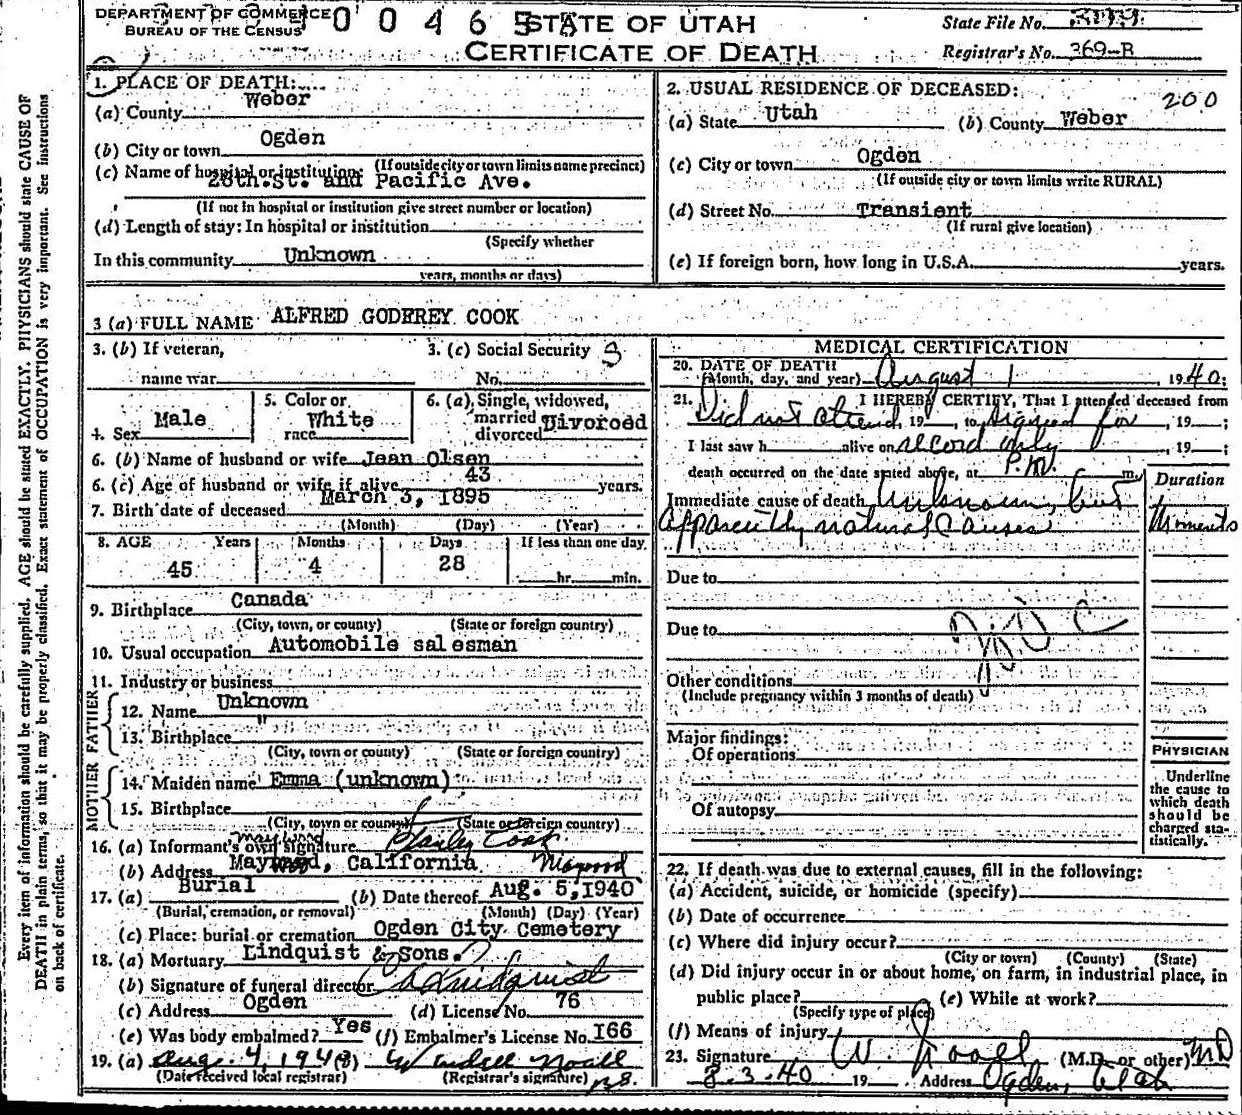 DEPARTMENT OF COMMERCE
BUREAU OF THE CENSUS
0 0 4 6 5
STATE OF UTAH
CERTIFICATE OF DEATH
State File No.
Registrar's No. 369-B
1. PLACE OF DEATH:
(a) County Weber
(b) City or town Ogden
(If outside city or town limits name precinct)
(c) Name of hospital or institution:
28th.St. and Pacific Ave.
(If not in hospital or institution give street number or location)
(d) Length of stay: In hospital or institution
(Specify whether
In this community Unknown
years, months or days)
2. USUAL RESIDENCE OF DECEASED:
200
(a) State Utah (b) County Weber
(c) City or town Ogden
(If outside city or town limits write RURAL)
(d) Street No. Transient
(If rural give location)
(e) If foreign born, how long in U.S.A. years.
3 (a) FULL NAME ALFRED GODFREY COOK
3. (b) If veteran,
name war
3. (c) Social Security
No.
4. Sex Male
5. Color or race White
6. (a) Single, widowed, married divorced Divorced
6. (b) Name of husband or wife Jean Olsen
6. (c) Age of husband or wife if alive 43 years.
7. Birth date of deceased March 3, 1895
(Month) (Day) (Year)
8. AGE Years Months Days If less than one day
45 4 28 hr. min.
9. Birthplace Canada
(City, town, or county) (State or foreign country)
10. Usual occupation Automobile salesman
11. Industry or business
FATHER
12. Name Unknown
13. Birthplace "
(City, town or county) (State or foreign country)
MOTHER
14. Maiden name Emma (unknown)
15. Birthplace
(City, town or county) (State or foreign country)
16. (a) Informant's own signature Stanley Cook
Maywood
(b) Address Maywood, California Maywood
17. (a) Burial (b) Date thereof Aug. 5, 1940
(Burial, cremation, or removal) (Month) (Day) (Year)
(c) Place: burial or cremation Ogden City Cemetery
18. (a) Mortuary Lindquist & Sons.
(b) Signature of funeral director Lindquist
(c) Address Ogden (d) License No. 76
(e) Was body embalmed? Yes (f) Embalmer's License No. I66
19. (a) Aug. 4, 1940 (b) Wendell Noall
(Date received local registrar) (Registrar's signature)
MEDICAL CERTIFICATION
20. DATE OF DEATH
(Month, day, and year) August 1, 1940;
21. I HEREBY CERTIFY, That I attended deceased from
Did not attend, 19 , to signed for , 19 ;
I last saw h alive on record only , 19 ;
death occurred on the date stated above, at P.M. m.
Duration
Immediate cause of death Unknown, but
apparently natural causes
Moments
Due to
Due to
Other conditions
(Include pregnancy within 3 months of death)
Major findings:
Of operations
Of autopsy
PHYSICIAN
Underline
the cause to
which death
should be
charged sta-
tistically.
22. If death was due to external causes, fill in the following:
(a) Accident, suicide, or homicide (specify)
(b) Date of occurrence
(c) Where did injury occur?
(City or town) (County) (State)
(d) Did injury occur in or about home, on farm, in industrial place, in
public place? (e) While at work?
(Specify type of place)
(f) Means of injury
23. Signature W. Noall (M.D. or other) MD
8.3.40 19 Address Ogden, Utah
Every item of information should be carefully supplied. AGE should be stated EXACTLY. PHYSICIANS should state CAUSE OF
DEATH in plain terms, so that it may be properly classified. Exact statement of OCCUPATION is very important. See instructions
on back of certificate.